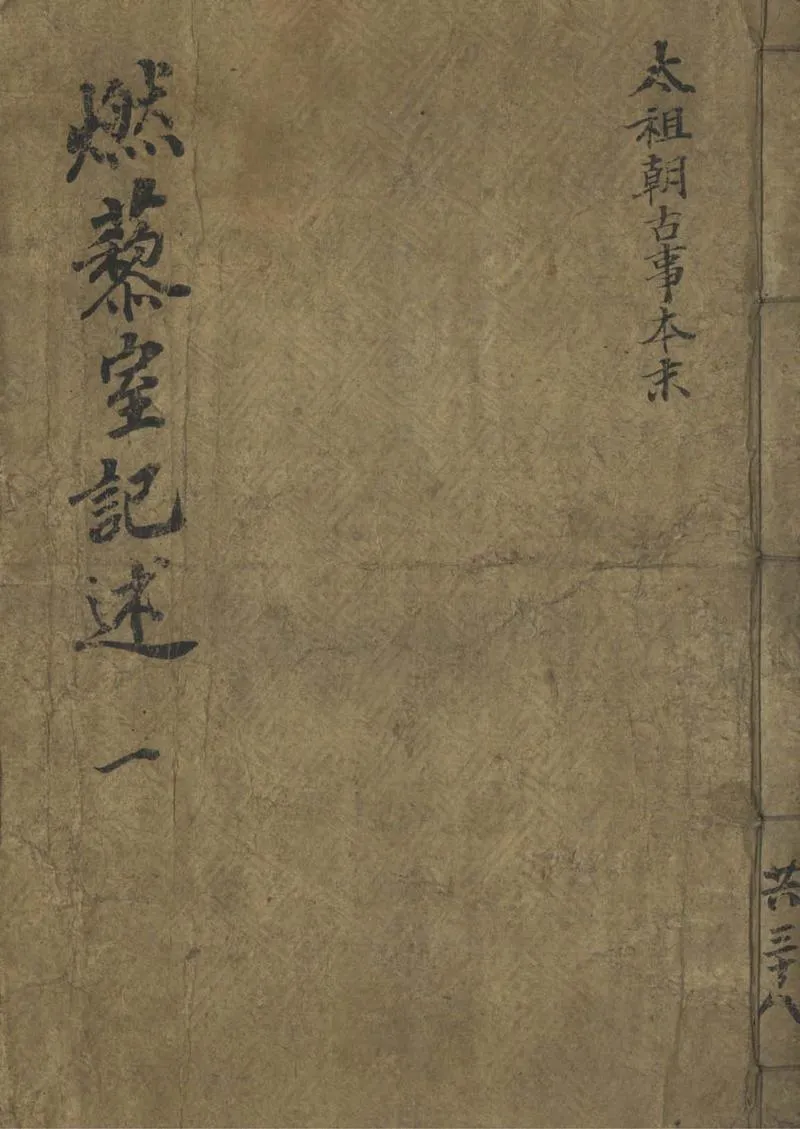 燃藜室記述 一
太祖朝古事本末
共三十八